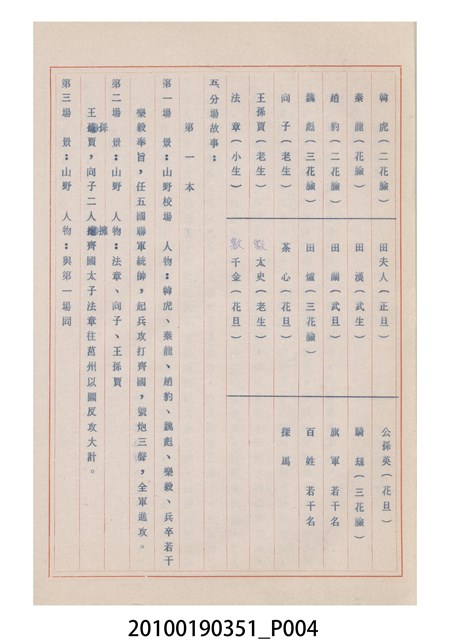 韓虎(二花臉)
秦龍(花臉)
趙豹(二花臉)
魏彪(三花臉)
向子(老生)
王孫賈(老生)
法章(小生)
田夫人(正旦)
田漢(武生)
田繭(武旦)
田爐(三花臉)
茶心(花旦)
敫太史(老生)
敫千金(花旦)
公孫英(花旦)
騎劫(三花臉)
旗軍若干名
百姓若干名
探馬
五、分場故事:
第一本
第一場 景:山野校場 人物:韓虎、秦龍、趙豹、魏彪、樂毅、兵卒若干
樂毅奉旨,任五國聯軍統帥,起兵攻打齊國,號炮三聲,全軍進攻。
第二場 景:山野 人物:法章、向子、王孫賈
王孫賈,向子二人擁齊國太子法章往莒州以圖反攻大計。
第三場 景:山野 人物:與第一場同
20100190351_P004